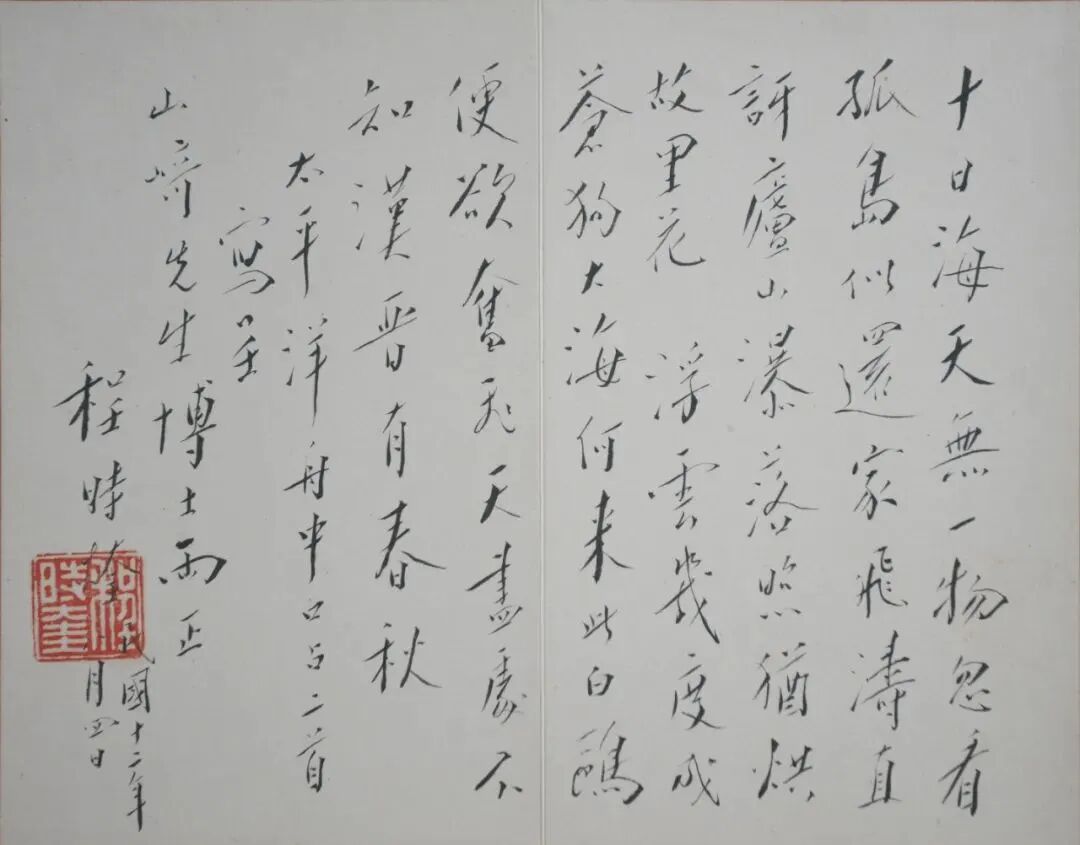 十日海天無一物忽看
孤島似還家飛濤直
訝廬山瀑落照猶烘
故里花 浮雲幾度成
蒼狗大海何来此白鷗
便欲奮飛天盡處不
知漢晉有春秋
太平洋舟中口占二首
寫呈
山崎先生博士正
程時煃
民國十二年
月四日